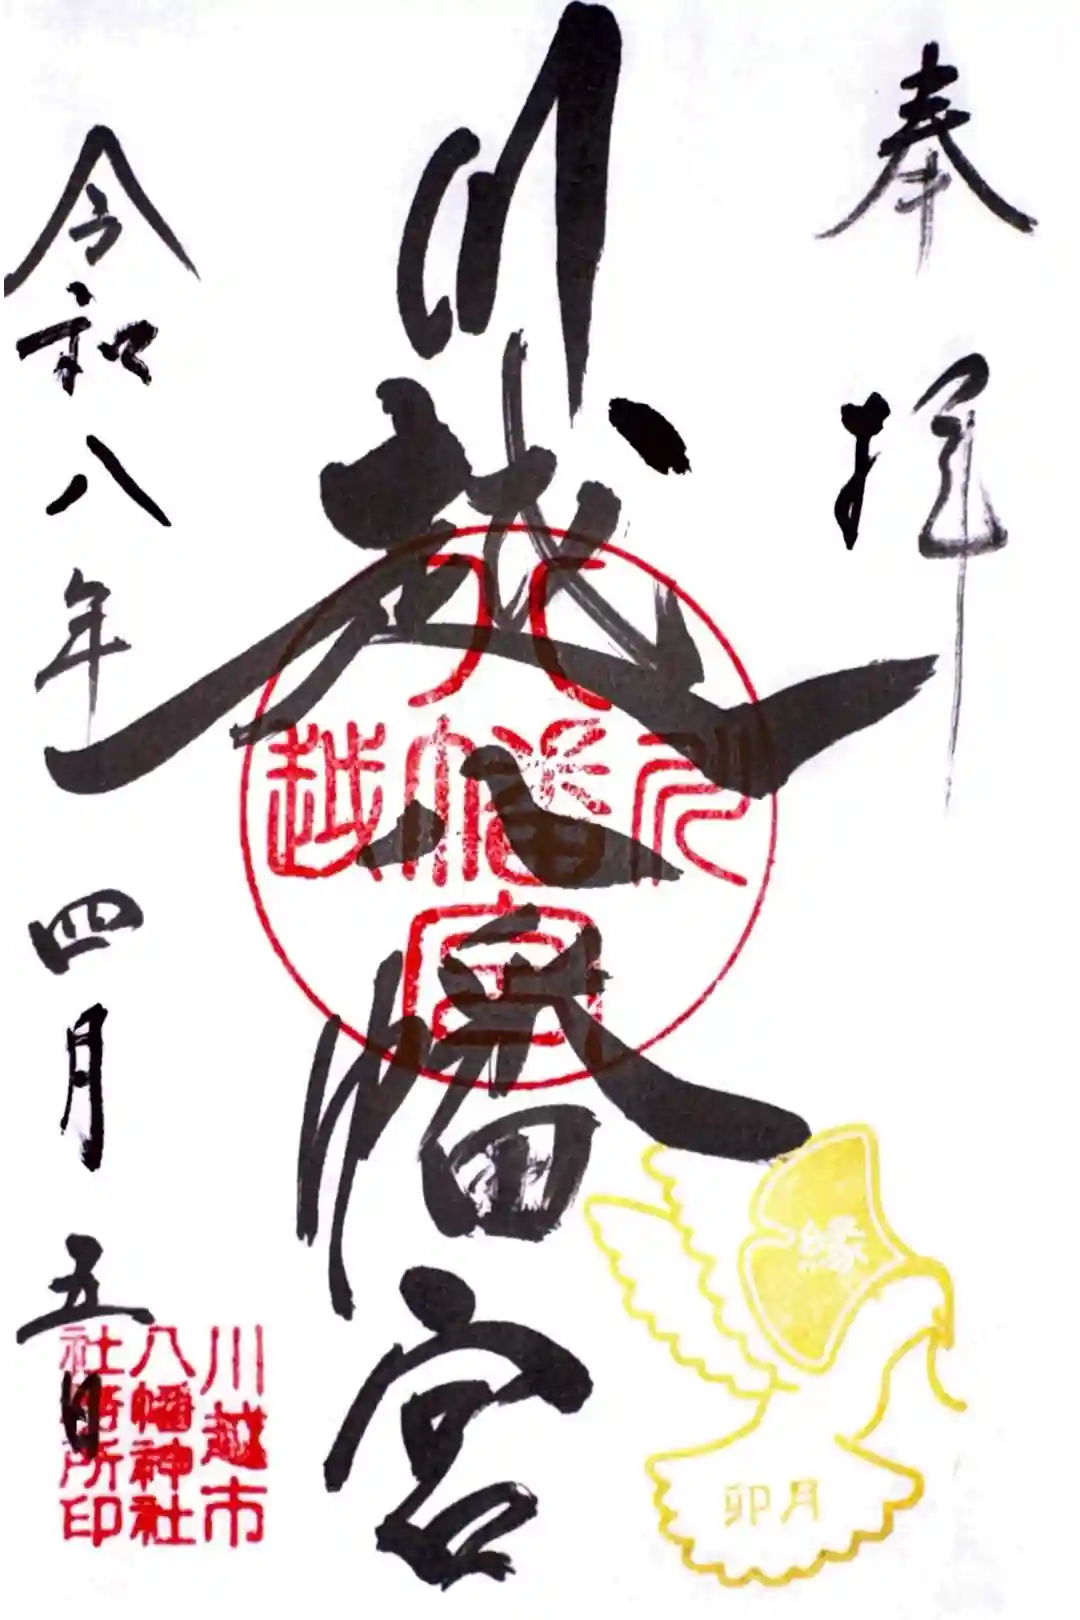 奉拝
川越八幡宮
八
川幡越
宮
令和八年四月五日
縁
卯月
川越市
八幡神社
社務所印